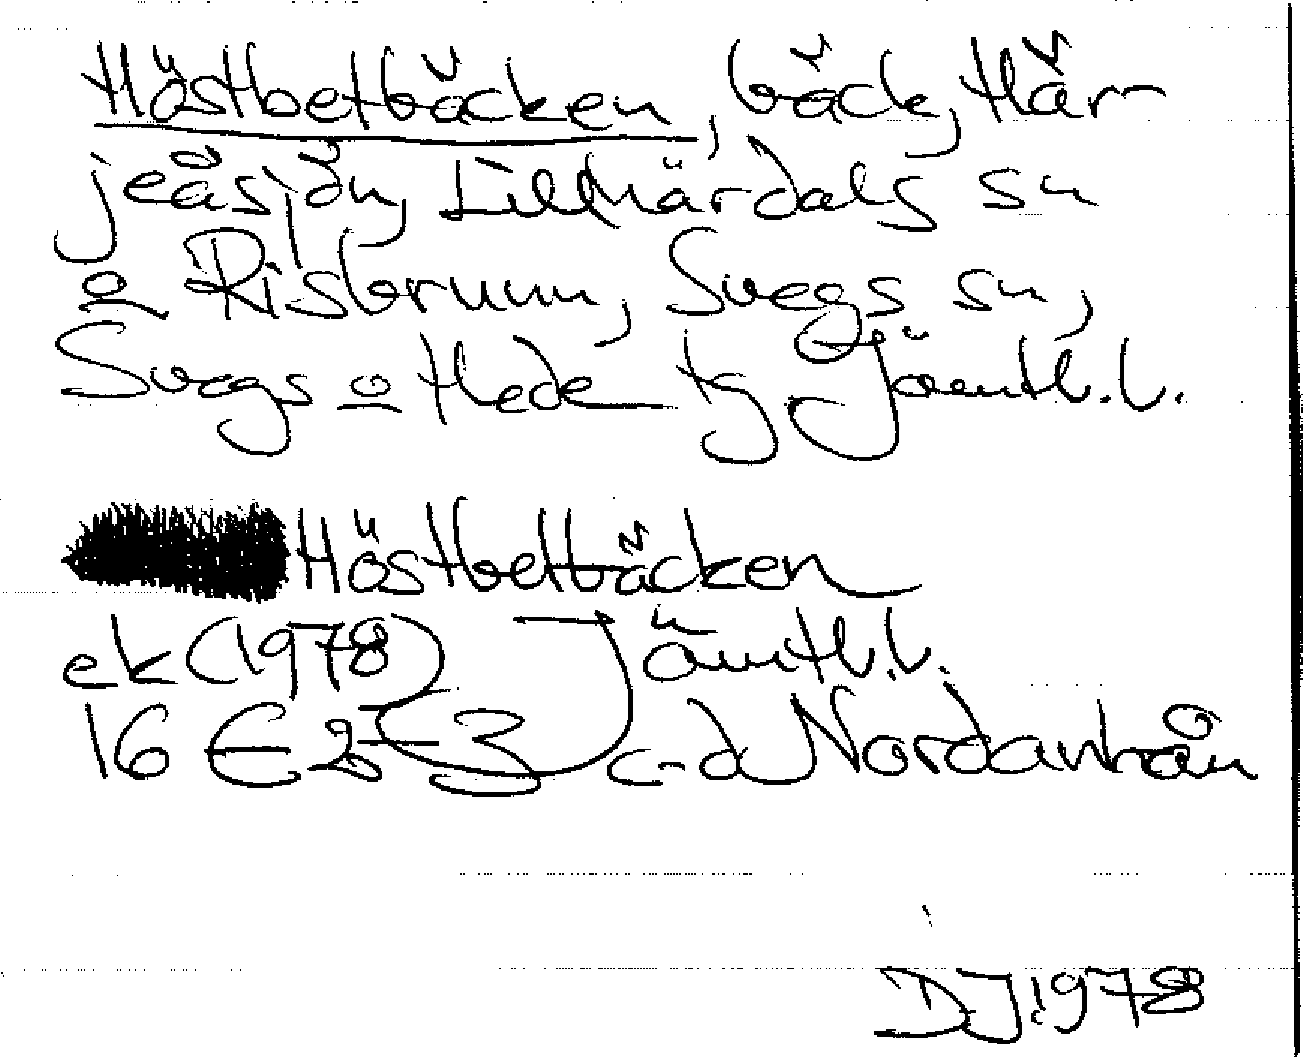 Höstbetbäcken, bäck, Här-
jeåsjön, Lillhärdals sn
o Risbrunn, Svegs sn,
Svegs o Hede tg Jämtl. l.
Höstbetbäcken
ek (1978) Jämtl. l.
16 E 2-3 c-d Nordanhån
DJ 1978